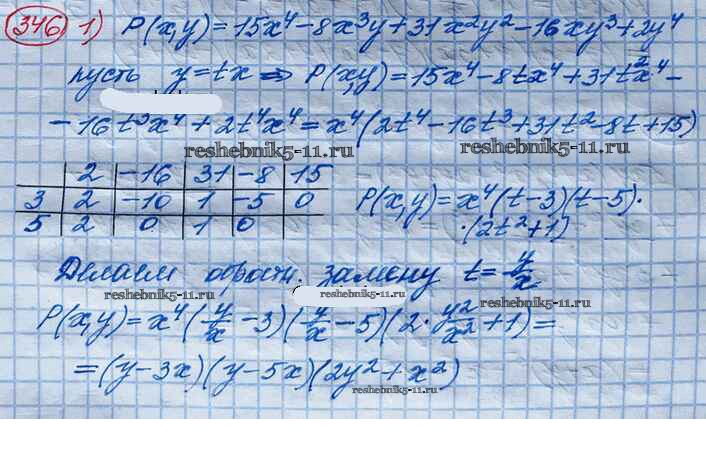 346 1) P(x,y)=15x⁴-8x³y+31x²y²-16xy³+2y⁴
пусть y=tx ⇒ P(x,y)=15x⁴-8tx⁴+31t²x⁴-
-16t³x⁴+2t⁴x⁴=x⁴(2t⁴-16t³+31t²-8t+15)
reshebnik5-11.ru reshebnik5-11.ru
2 -16 31 -8 15
3 2 -10 1 -5 0 P(x,y)=x⁴(t-3)(t-5)·
5 2 0 1 0 ·(2t²+1)
Делаем обратн. замену t=y/x
reshebnik5-11.ru reshebnik5-11.ru
P(x,y)=x⁴(y/x-3)(y/x-5)(2·y²/x²+1)=
=(y-3x)(y-5x)(2y²+x²)
reshebnik5-11.ru